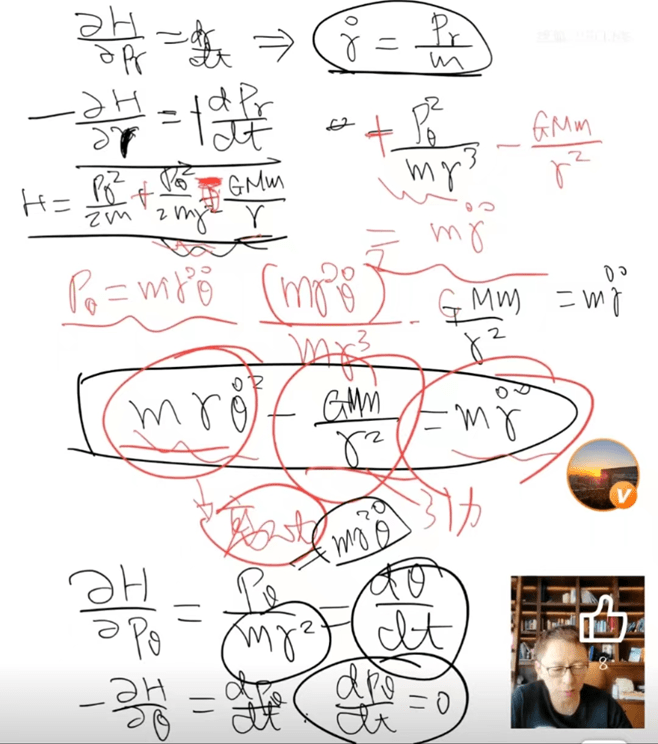 ∂H/∂Pr = dr/dt ⇒ ṙ = Pr/m
-∂H/∂r = dPr/dt + Pθ²/mr³ - GMm/r²
H = Pr²/2m + Pθ²/2mr² - GMm/r = mr̈
Pθ = mr²θ̇ (mr²θ̇)²/mr³ - GMm/r² = mr̈
mrθ̇² - GMm/r² = mr̈
引力
= mr²θ̇
∂H/∂Pθ = Pθ/mr² = dθ/dt
-∂H/∂θ = dPθ/dt dPθ/dt = 0
V
8